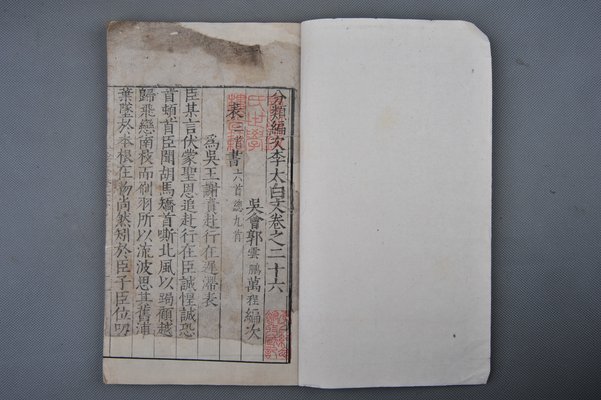 分類編次李太白文卷之二十六
吳會郭雲鵬萬程編次
表三首書六首總九首
為吳王謝責赴行在遲滯表
臣某言伏蒙聖恩追赴行在臣誠惶誠恐
首頓首臣聞胡馬矯首嘶北風以跼顧越
歸飛戀南枝而刷羽所以流波思其舊浦
葉墜於本根在物尚然矧於臣子臣位叨